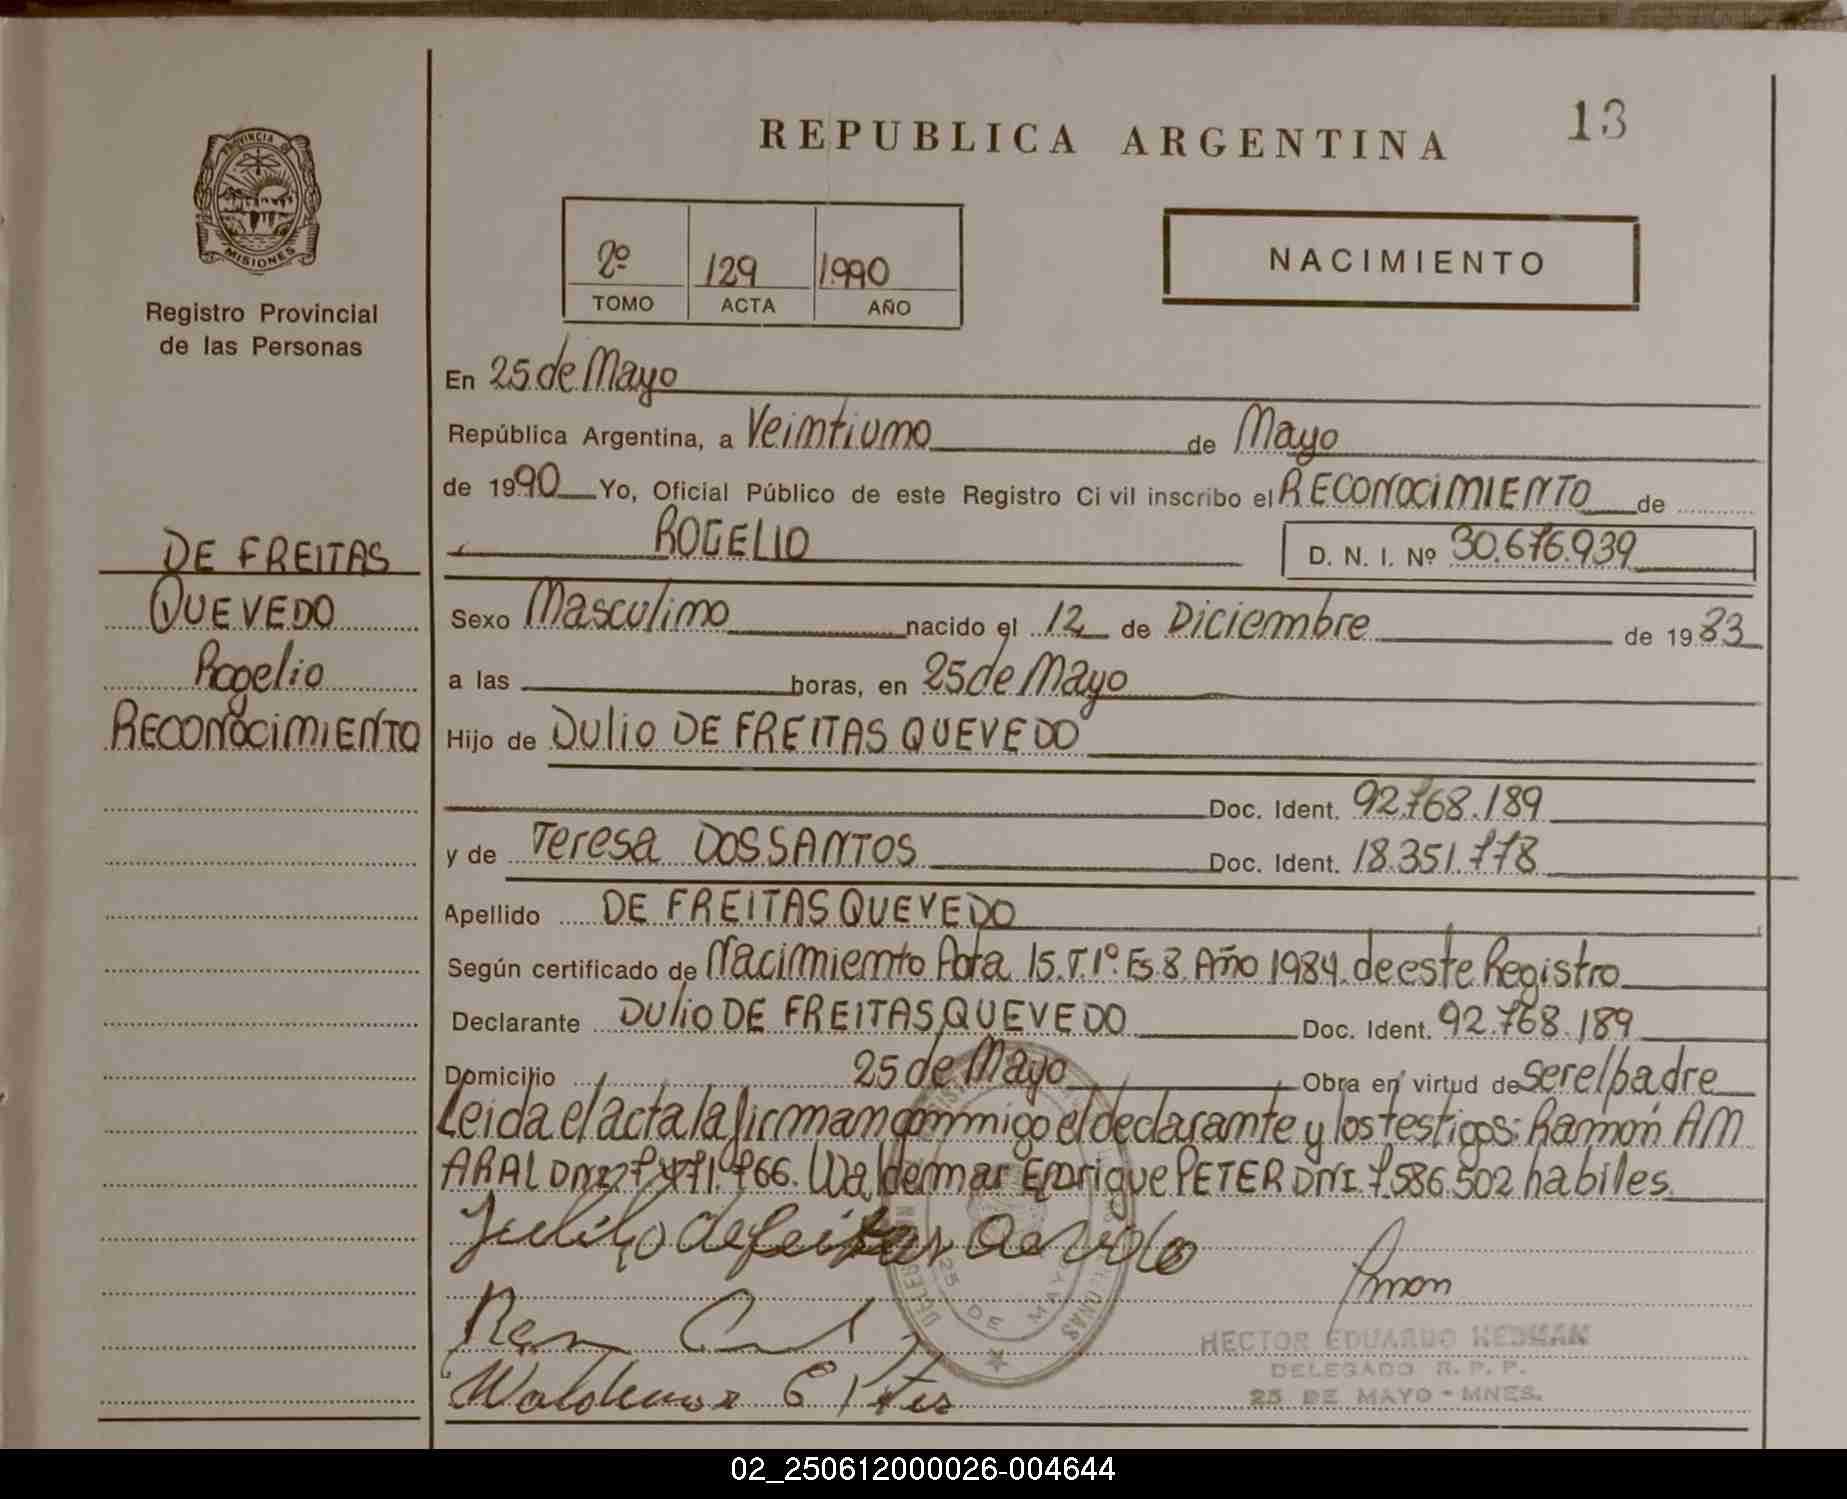 13
REPUBLICA ARGENTINA
PROVINCIA DE
MISIONES
Registro Provincial
de las Personas
2º 129 1.990
TOMO ACTA AÑO
NACIMIENTO
En 25 de Mayo
República Argentina, a Veintiuno de Mayo
de 1990 Yo, Oficial Público de este Registro Civil inscribo el RECONOCIMIENTO de
ROGELIO D. N. I. Nº 30.676.939
DE FREITAS
QUEVEDO
Rogelio
RECONOCIMIENTO
Sexo Masculino nacido el 12 de Diciembre de 1983
a las horas, en 25 de Mayo
Hijo de Dulio DE FREITAS QUEVEDO
Doc. Ident. 92.768.189
y de Teresa DOS SANTOS Doc. Ident. 18.351.778
Apellido DE FREITAS QUEVEDO
Según certificado de Nacimiento Acta 15. T. 1º. Fs. 8. Año 1984. de este Registro
Declarante Dulio DE FREITAS QUEVEDO Doc. Ident. 92.768.189
Domicilio 25 de Mayo Obra en virtud de ser el padre
Leida el acta la firman conmigo el declarante y los testigos: Ramón AM
ARAL DNI 7.471.766. Waldemar Enrique PETER DNI 7.586.502 habiles
25 DE MAYO
HECTOR EDUARDO HEDMAN
DELEGADO R. P. P.
25 DE MAYO - MNES.
Waldemar E
02_250612000026-004644